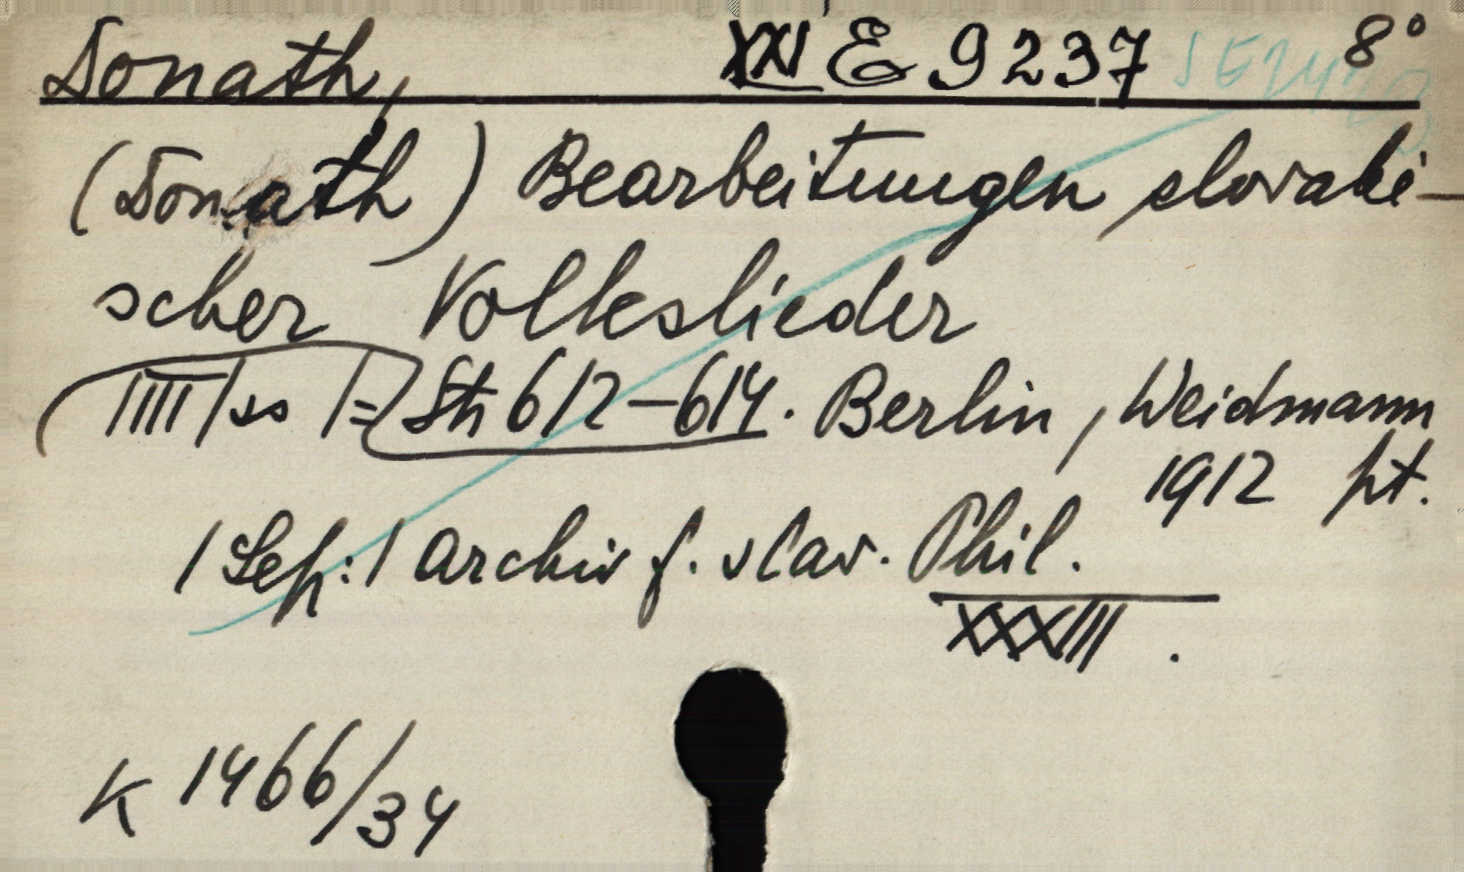 Donath, XXI E 9237 8°
(Donath) Bearbeitungen slovaki-
scher Volkslieder
Str 612-614. Berlin, Weidmann
1912 pt.
/Sep:/ Archiv f. slav. Phil.
XXXIII.
K 1466/34